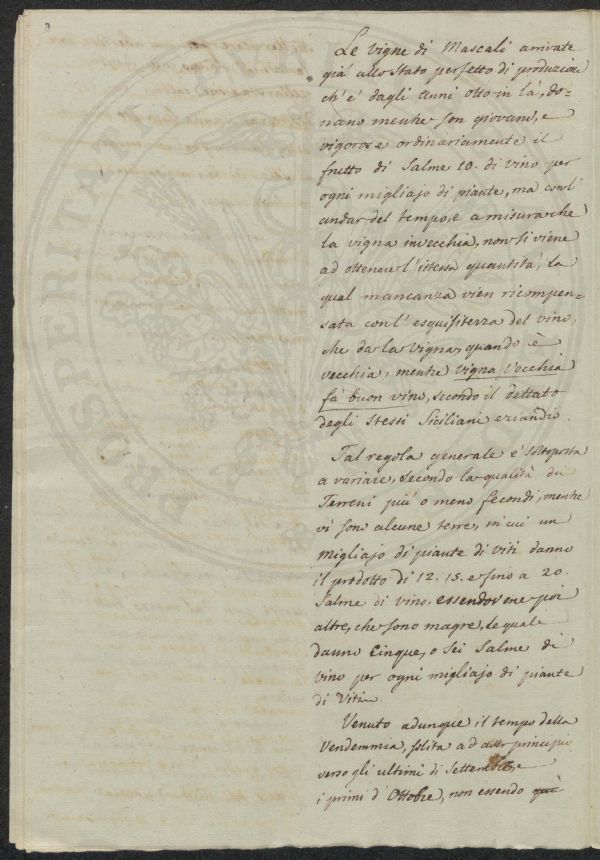 Le vigne di Mascali arrivate
già allo stato perfetto di produzione
ch'è dagli anni otto in la, do-
nano mentre son giovani, e
vigorose ordinariamente il
frutto di Salme 10. di vino per
ogni migliajo di piante, ma coll'
andar del tempo, e a misura che
la vigna invecchia, non si viene
ad ottenere l'istessa quantità, la
qual mancanza vien ricompen-
sata coll'esquisitezza del vino,
che da la vigna, quando è
vecchia; mentre vigna vecchia
fà buon vino, secondo il dettato
degli stessi Siciliani eziandio.
Tal regola generale è sottoposta
a variare, secondo la qualità de
Terreni più o meno fecondi, mentre
vi sono alcune terre, in cui un
migliajo di piante di viti danno
il prodotto di 12. 15. e fino a 20.
Salme di vino, essendovene poi
altre, che sono magre, le quale
danno Cinque, o Sei Salme di
vino per ogni migliajo di piante
di Viti.
Venuto adunque il tempo della
Vendemmia, solita ad aver principio
verso gli ultimi di Settembre, e
i primi d'Ottobre, non essendo
PROSPERITAS